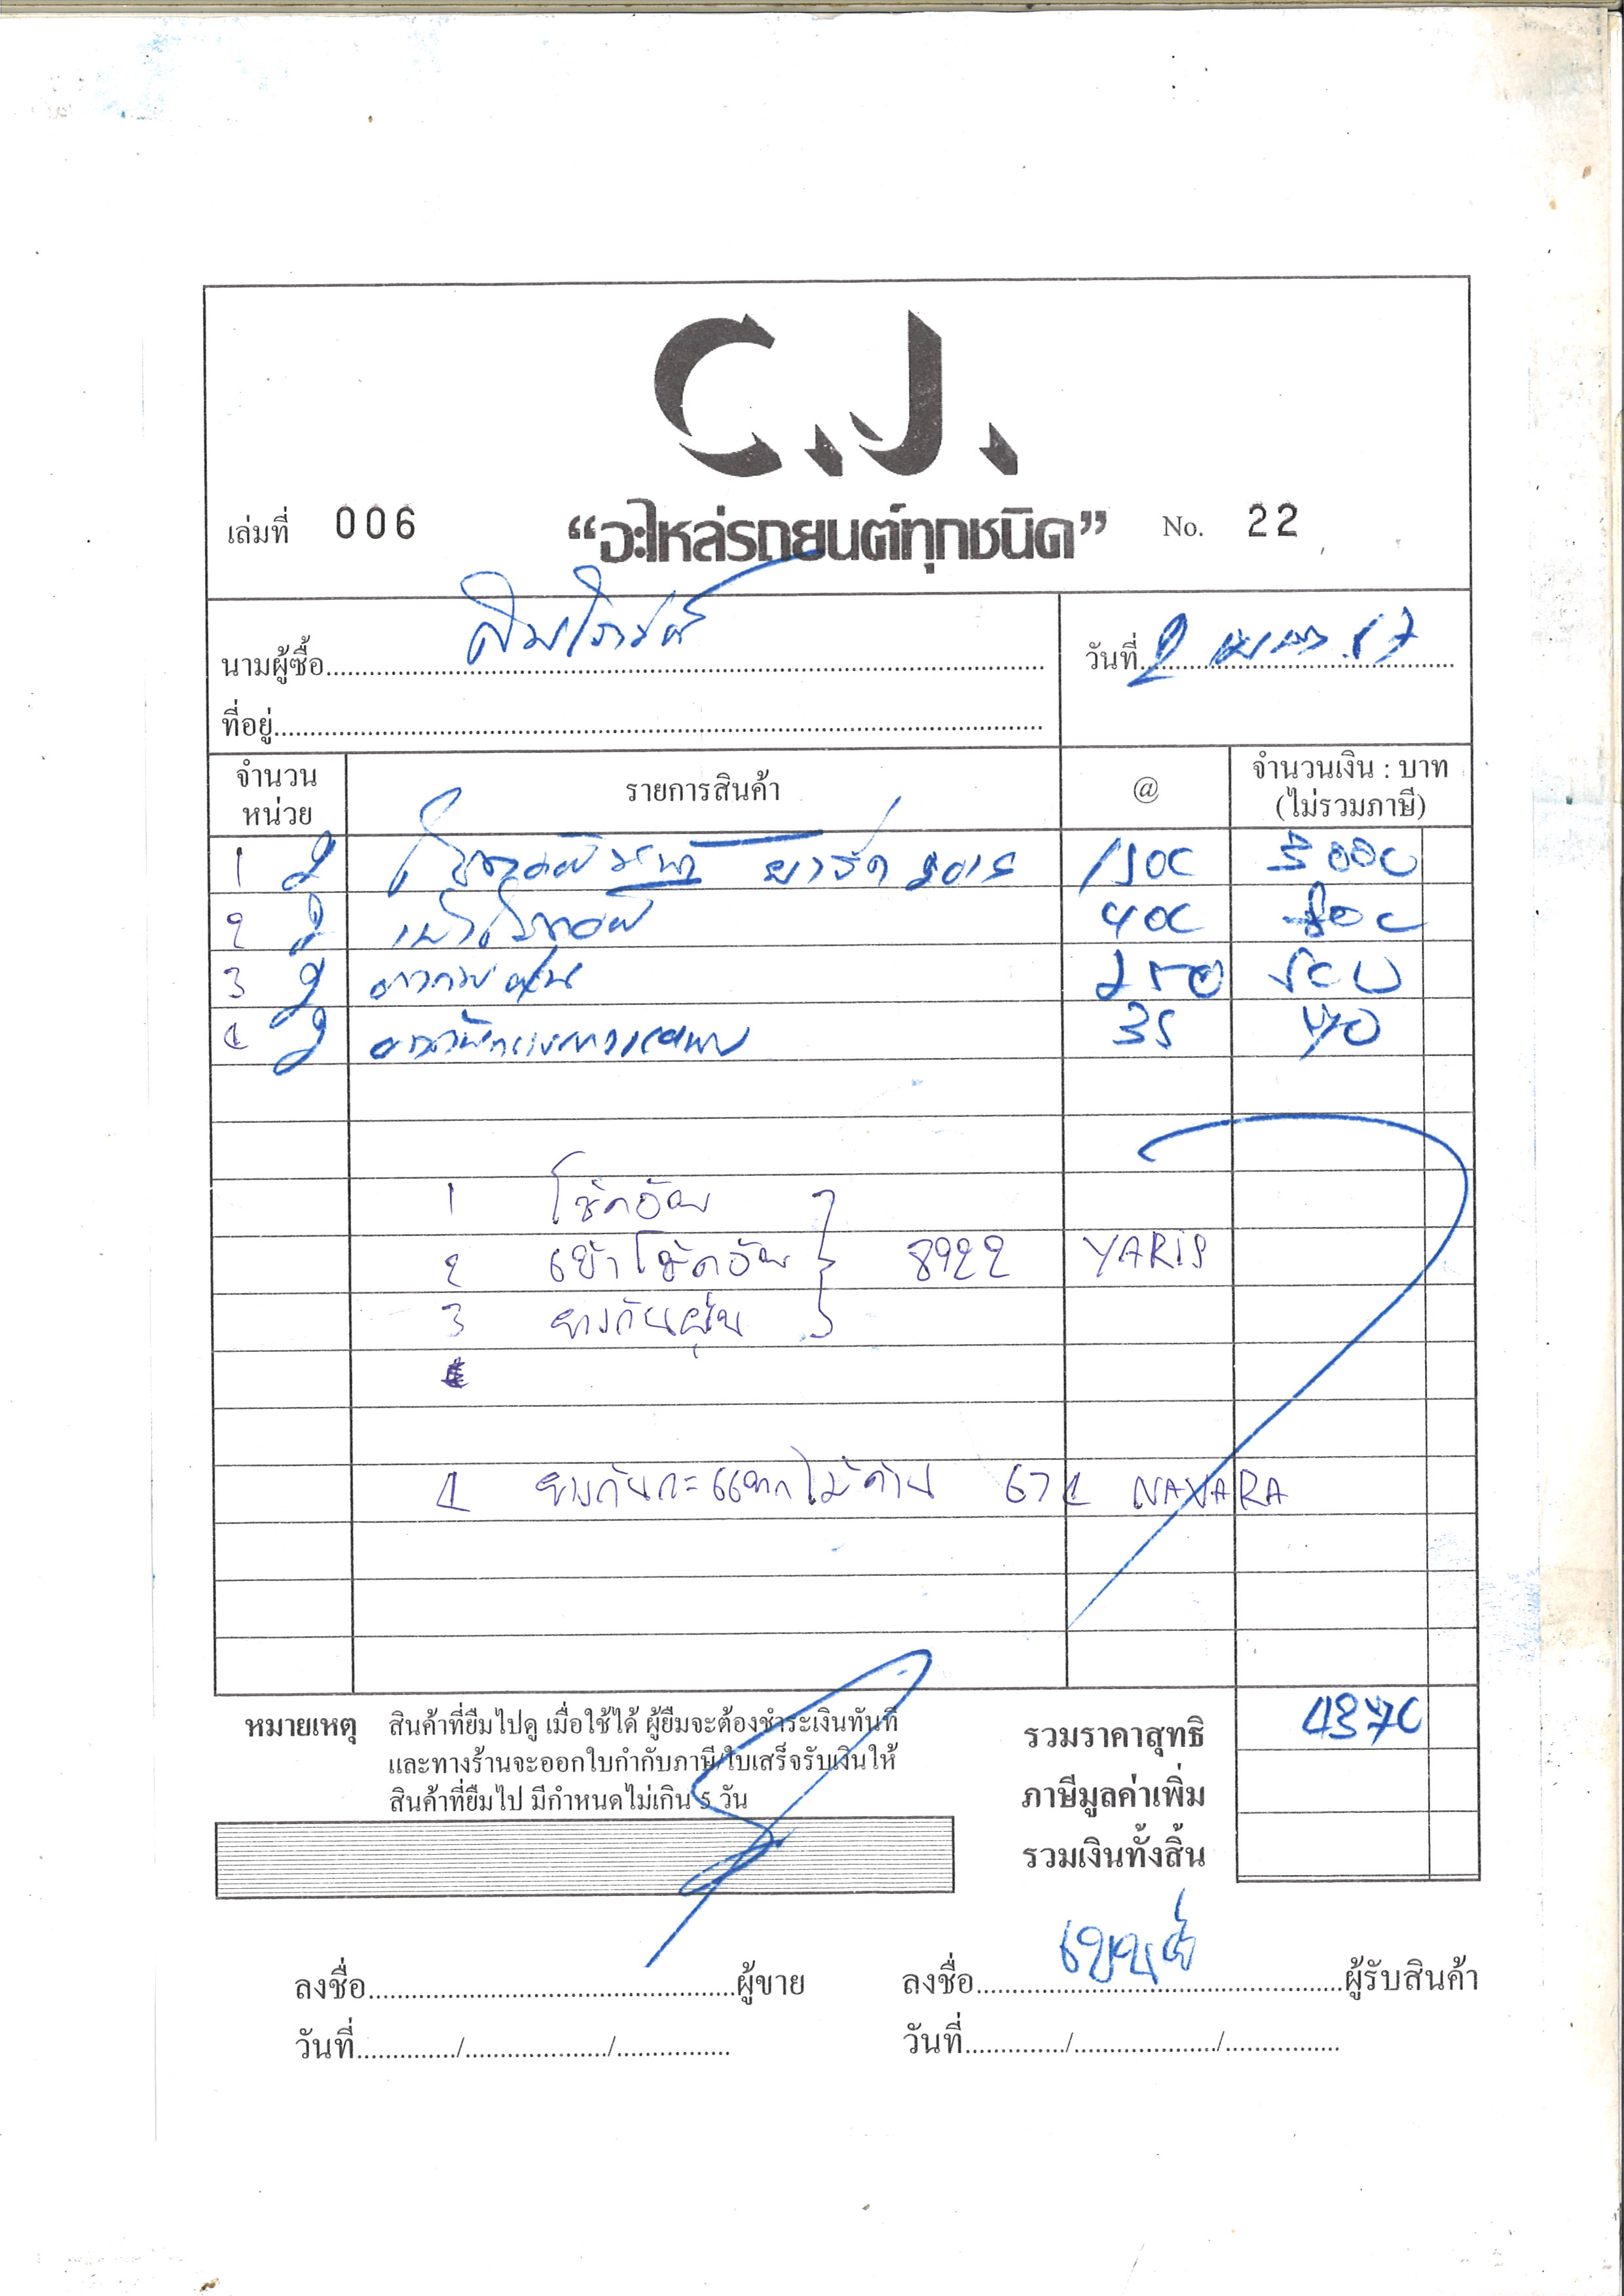 C.J.
เล่มที่ 006 “อะไหล่รถยนต์ทุกชนิด” No. 22
นามผู้ซื้อ วันที่ 2 67
ที่อยู่
จำนวนหน่วย รายการสินค้า @ จำนวนเงิน : บาท (ไม่รวมภาษี)
1 2 ยาริส 2015 1500 3000
2 2 เบ้าโช้คอัพ 400 800
3 2 ยางกันฝุ่น 250 500
4 2 35 70
1 โช๊คอัพ
2 เบ้าโช๊คอัพ 8922 YARIS
3 ยางกันฝุ่น
4 ยางกันกะแทกไม้คาน 674 NAVARA
หมายเหตุ สินค้าที่ยืมไปดู เมื่อใช้ได้ ผู้ยืมจะต้องชำระเงินทันที
และทางร้านจะออกใบกำกับภาษี/ใบเสร็จรับเงินให้
สินค้าที่ยืมไป มีกำหนดไม่เกิน 5 วัน
รวมราคาสุทธิ 4370
ภาษีมูลค่าเพิ่ม
รวมเงินทั้งสิ้น
ลงชื่อ ผู้ขาย ลงชื่อ ผู้รับสินค้า
วันที่ / / วันที่ / /